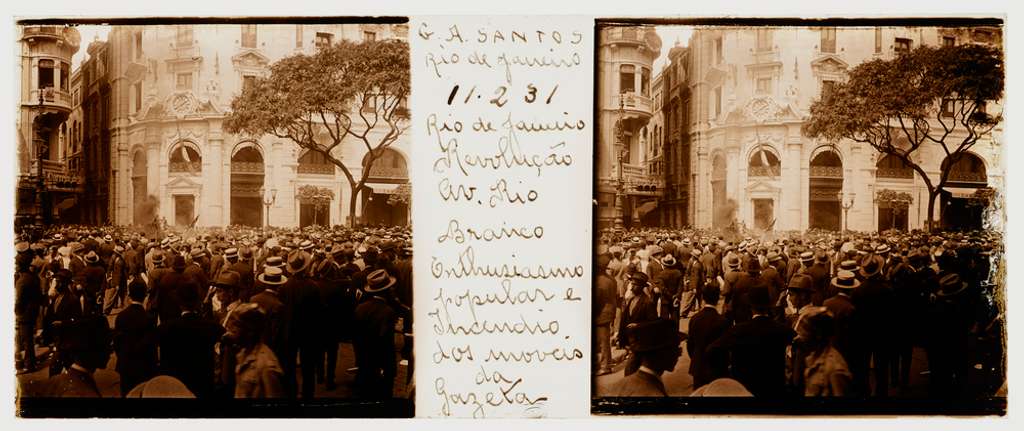 G. A. SANTOS
Rio de Janeiro
11.2 31
Rio de Janeiro
Revolução
Av. Rio
Branco
Enthusiasmo
popular e
Incendio
dos moveis
da
Gazeta